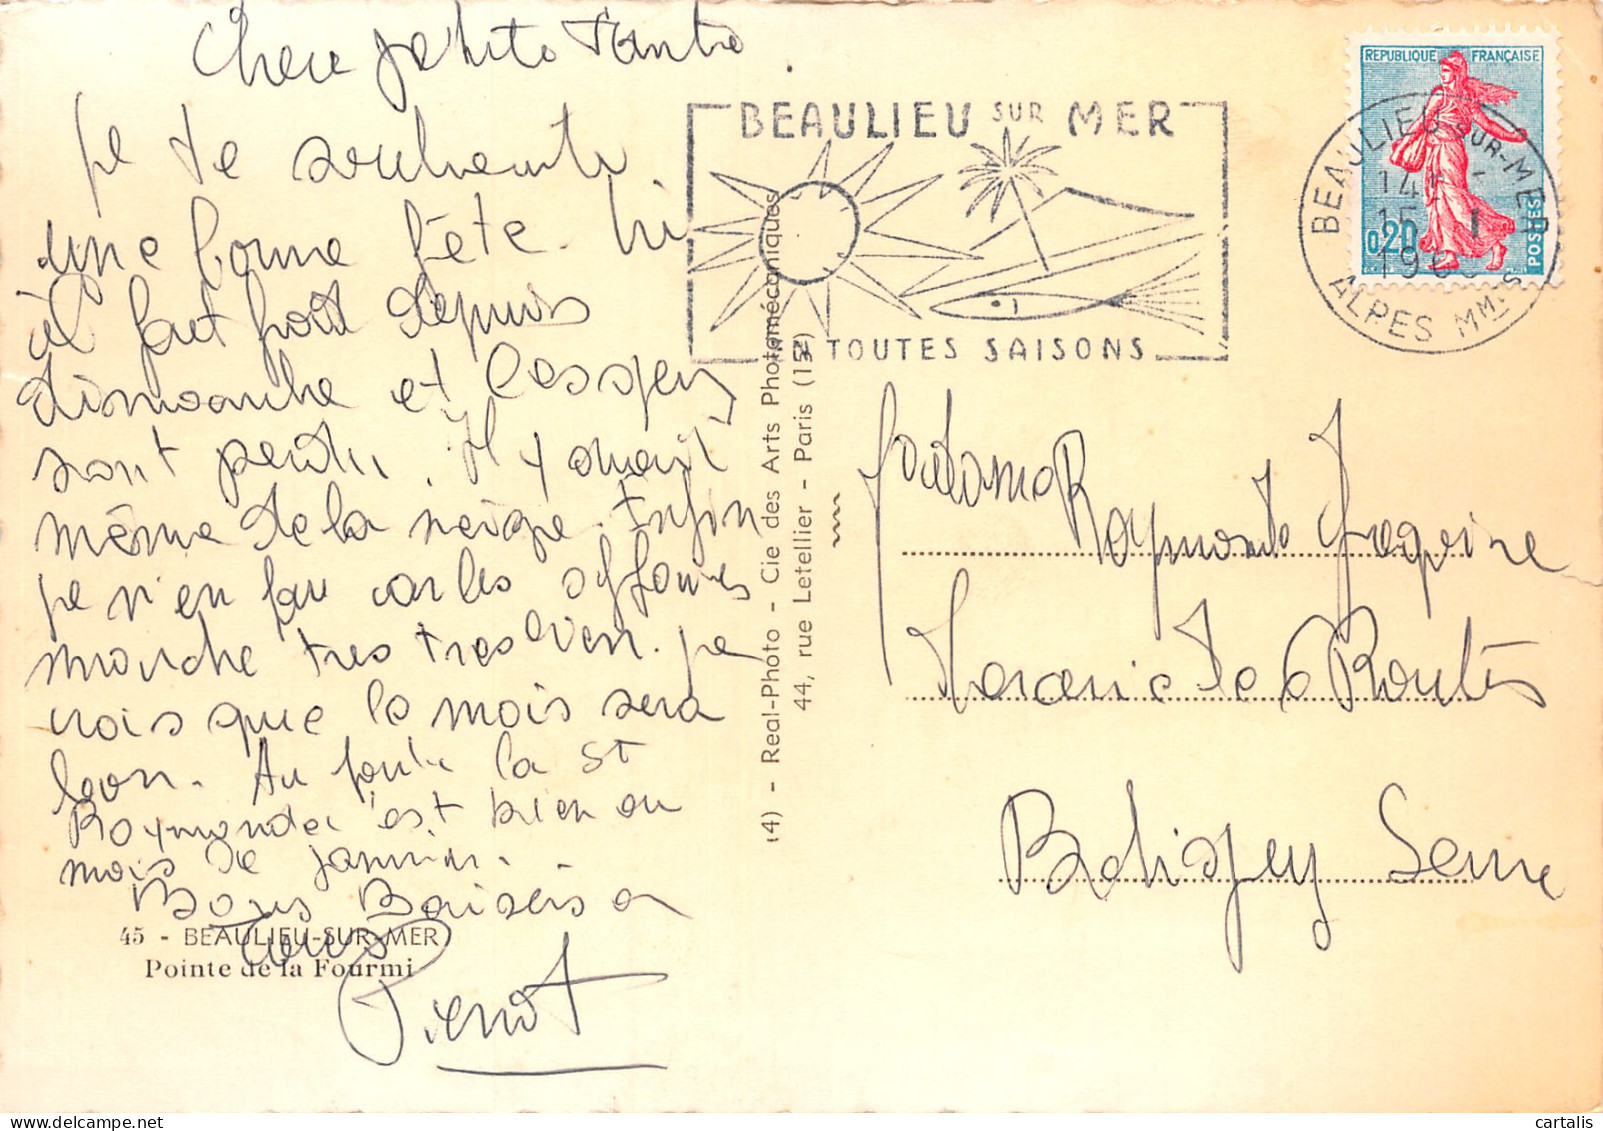 Chere petite Tante
je te souhaite
une bonne fête. Ici
il fait froid depuis
dimanche et
sont perdu. Il y avait
même de la neige. Enfin
je n'en fou car les affaires
marche tres tres bien. je
crois que le mois sera
bon. Au la St
Raymonde c'est bien au
mois de janvier.
Bons Baisers a
Tous
Pierrot
45 - BEAULIEU-SUR-MER
Pointe de la Fourmi
(4) - Real-Photo - Cie des Arts Photomécaniques
44, rue Letellier - Paris (15e)
BEAULIEU SUR MER
TOUTES SAISONS
REPUBLIQUE FRANÇAISE
0,20
POSTES
BEAULIEU SUR-MER
ALPES MMES
Madame
Raymonde
6 Routes
Seine
cartalis